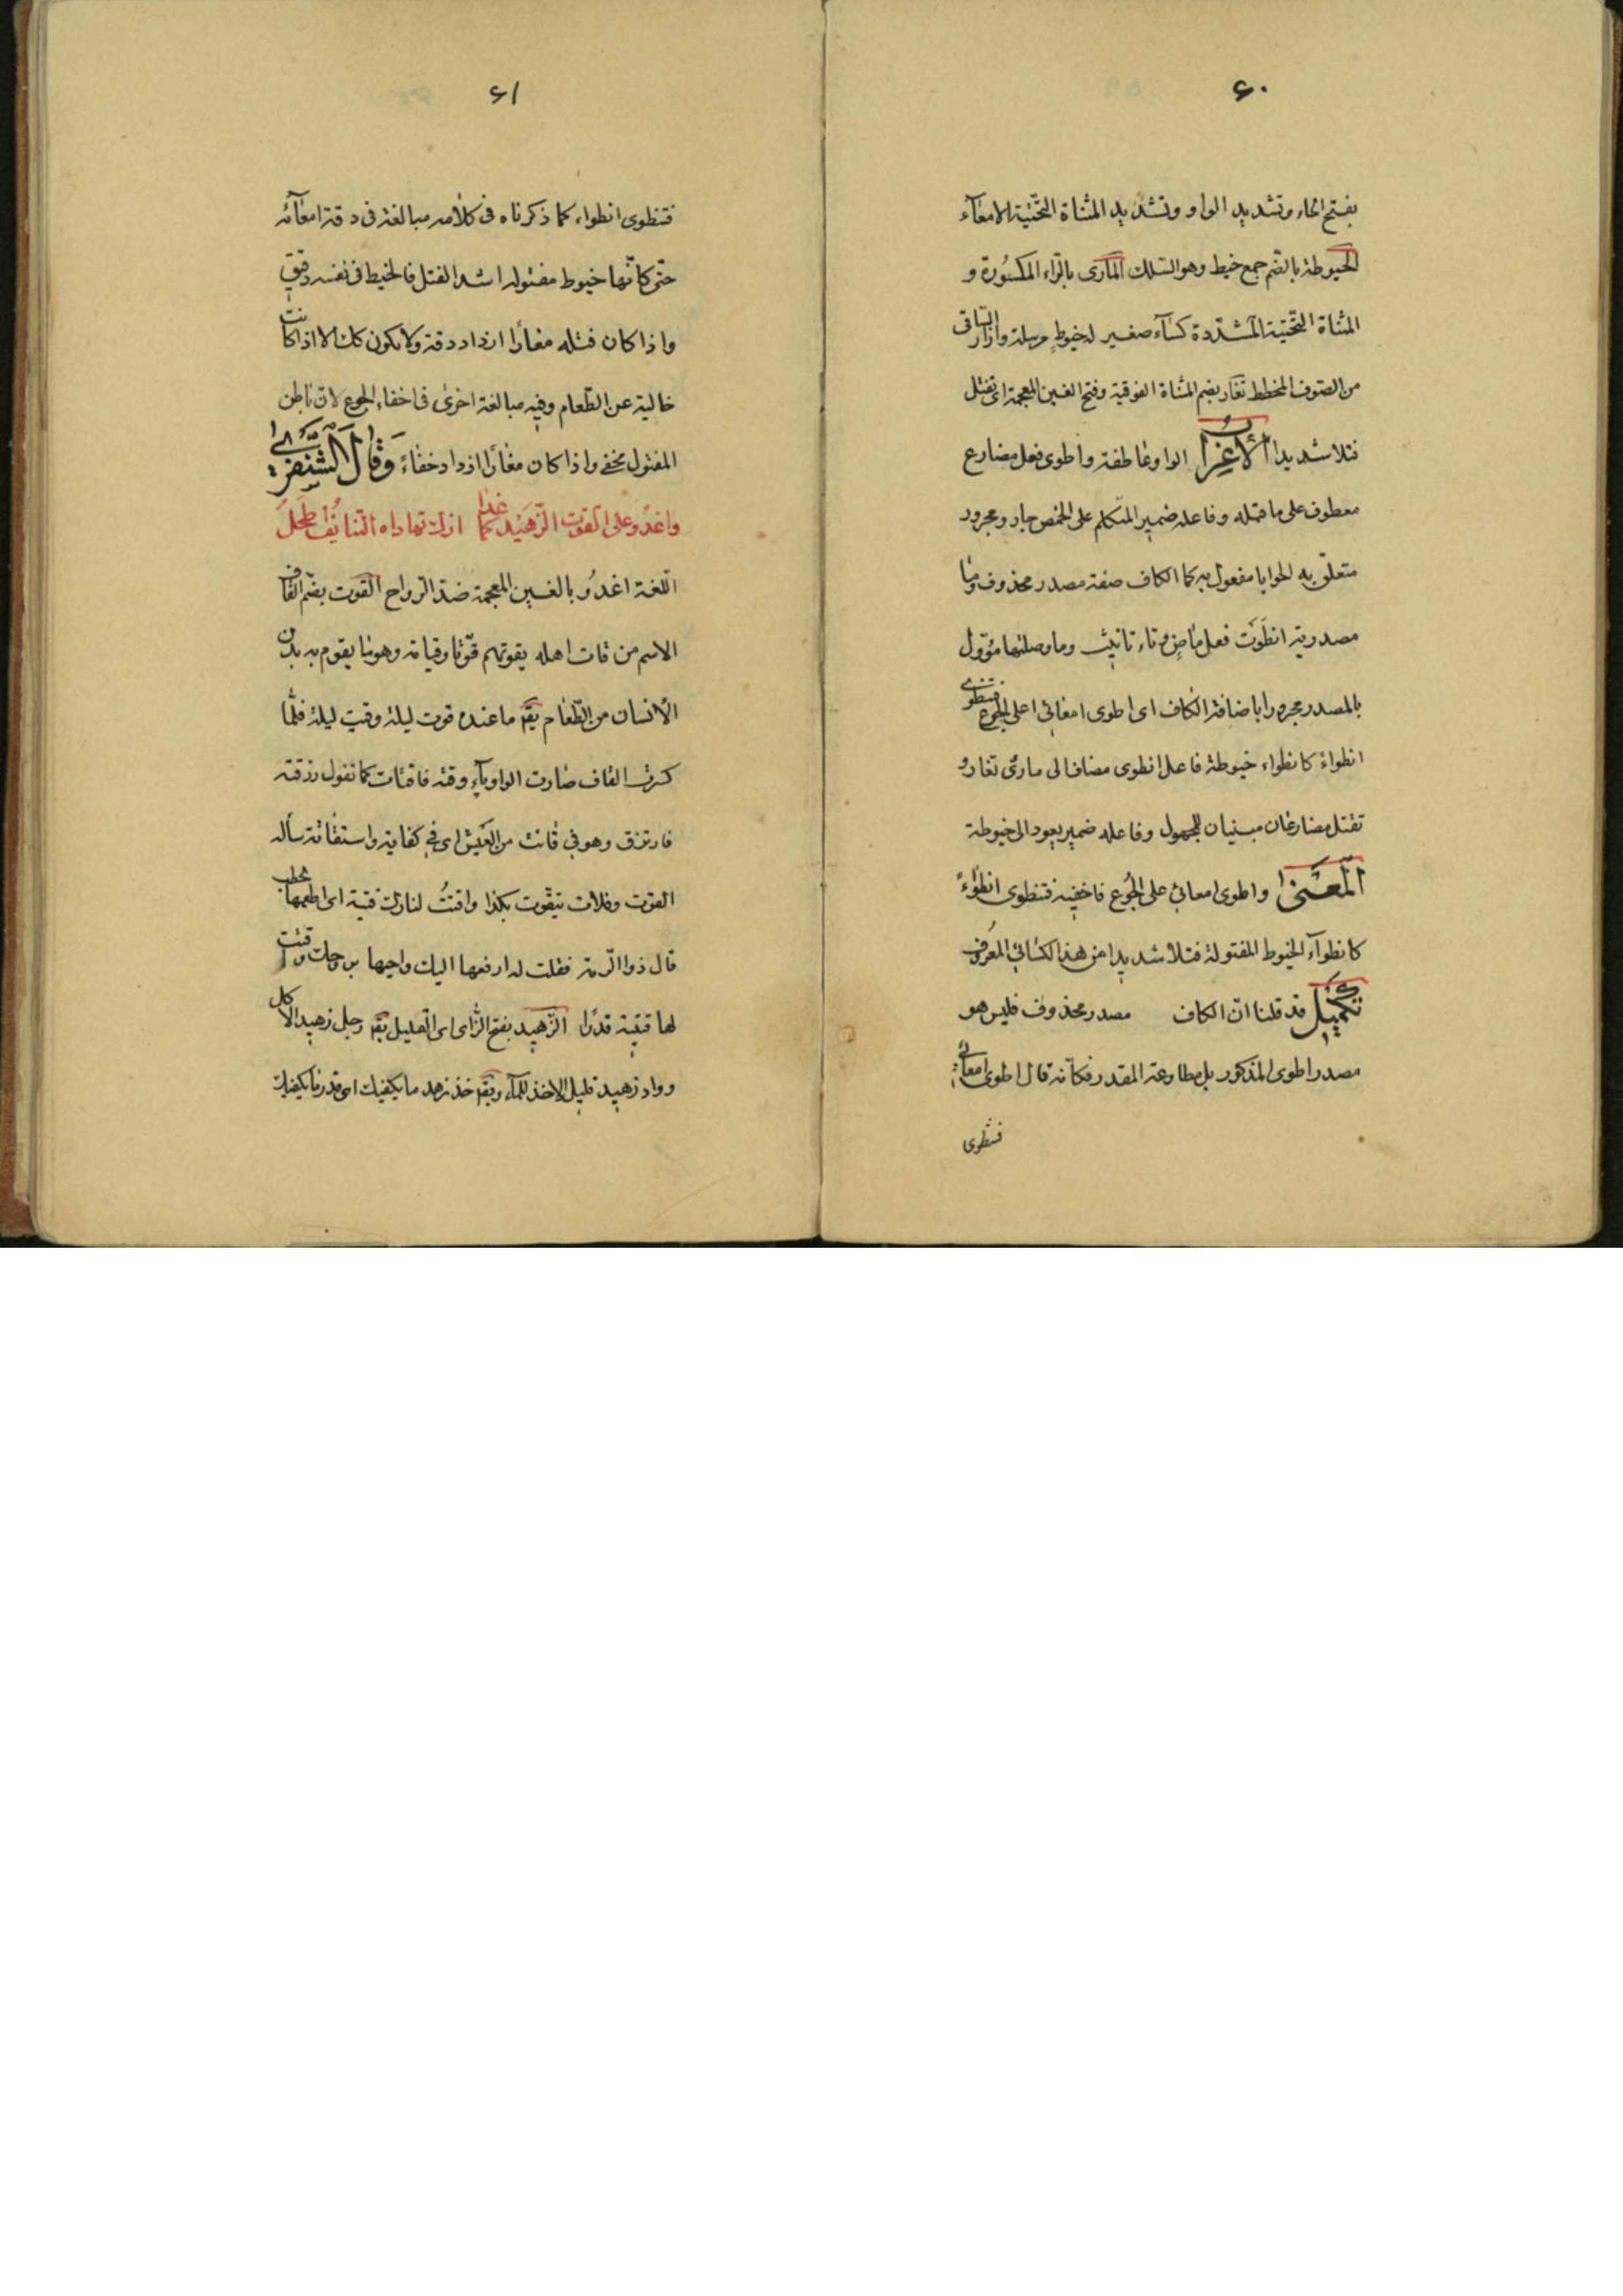 ٦٠
بفتح الحاء وتشديد الواو وتشديد المثناة التحتية الامعآء
الخيوطة بالضم جمع خيط وهو السلك المارى بالرّاء المكسورة و
المثناة التحتية المشدّدة كسآء صغير له خيوط مرسلة وازار الساقى
من الصوف المخطط تغار بضم المثناة الفوقية وفتح الغين المعجمة اى تفتل
فتلا شديدا الأعراب الواو عاطفة واطوى فعل مضارع
معطوف على ما قبله وفاعله ضمير المتكلم على الخمص جار ومجرور
متعلق به الحوايا مفعول به كما الكاف صفة مصدر محذوف وما
مصدرية انطَوَت فعل ماضٍ وتاء تانيث وما وصلتها مؤول
بالمصدر مجرورا باضافة الكاف اى اطوى امعائى على الجوع فتنطوى
انطواءً كانطواء خيوطة فاعل انطوى مضاف الى مارى تغار و
تفتل مضارعان مبنيان للمجهول وفاعله ضمير يعود الى خيوطة
المعنى واطوى امعائى على الجُوع فاخفيه فتنطوى انطواءً
كانطوآء الخيوط المفتولة فتلا شديدا من هذا الكسائى المعروف
تكميل قد قلنا انّ الكاف مصدر محذوف فليس هو
مصدر اطوى المذكور بل مطاوعته المقدر فكانّه قال اطوى امعائى
فتنطوى
٦١
فتنطوى انطواء كما ذكرناه فى كلامه مبالغة فى دقة امعآئه
حتّى كانّها خيوط مفتوله اشد الفتل فالخيط فى نفسه دقيق
واذا كان فتله مغارًا ازداد دقة ولا يكون كك الا اذا كانت
خالية عن الطّعام وفيه مبالغة اخرى فى اخفاء الجوع لان باطن
المفتول مخفى واذا كان مغارًا ازداد خفاءً وَقالَ الشنفرى
واغدو على القوت الزّهيد كما غدا ازلّ تهاداه التنائف اطحل
اللّغة اغدُو بالغين المعجمة ضدّ الرواح القوت بضم القاف
الاسم من قات اهله يقوتهم قَوتًا وقياتة وهو ما يقوم به بدن
الأنسان من الطّعام يقم ما عنده قوت ليلة وقيت ليلة فلمّا
كسرت القاف صارت الواو يآء وقته فاقتات كما تقول رزقته
فارتزق وهو فى قائت من العَيش اى فى كفاية واستقاته سأله
القوت وفلان يتقوت بكذا واقتتُ لنارك قيتة اى اطعمها بحطب
قال ذو الرّمة فقلت له ارفعها اليك واحيها بروحك واقتت
لها قيتة قدرًا الزّهيد بفتح الزّاى اى القليل يقم رجل زهيد الاكل
وواد زهيد قليل الاخذ للمآء ويقم خذ زهد ما يكفيك اى قدر ما يكفيك